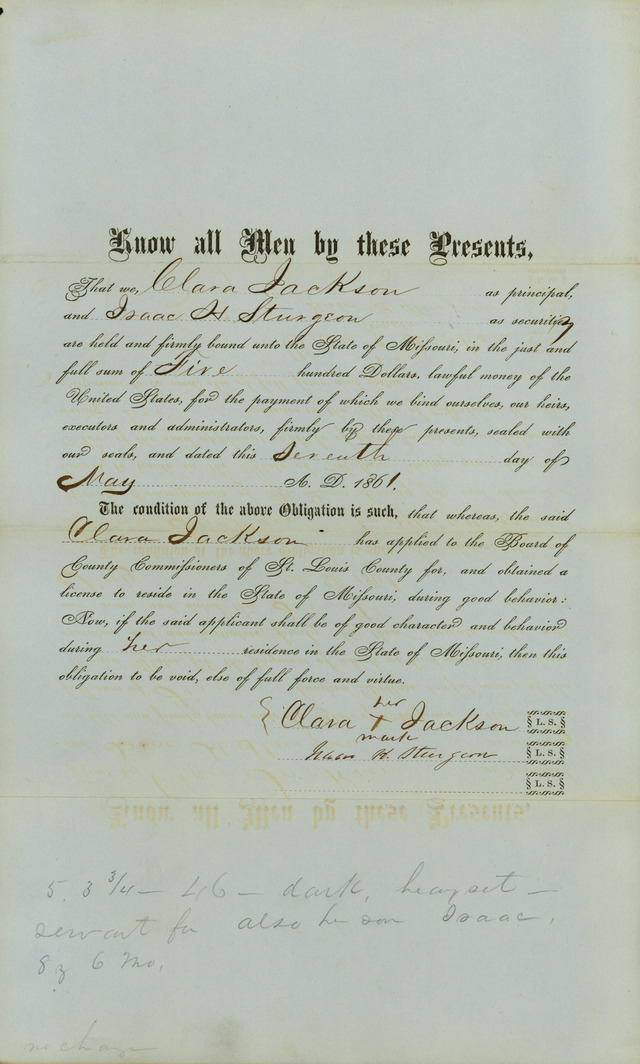 Know all Men by these Presents,
That we, Clara Jackson as principal,
and Isaac H Sturgeon as security
are held and firmly bound unto the State of Missouri, in the just and
full sum of Five hundred Dollars, lawful money of the
United States, for the payment of which we bind ourselves, our heirs,
executors and administrators, firmly by these presents, sealed with
our seals, and dated this Seventh day of
May A. D. 1861.
The condition of the above Obligation is such, that whereas, the said
Clara Jackson has applied to the Board of
County Commissioners of St. Louis County for, and obtained a
license to reside in the State of Missouri, during good behavior:
Now, if the said applicant shall be of good character and behavior
during her residence in the State of Missouri, then this
obligation to be void, else of full force and virtue.
her
Clara X Jackson L. S.
mark
Isaac H. Sturgeon L. S.
L. S.
5. 3 3/4 — 46 — dark, heavyset —
servant for also her son Isaac,
8 y 6 Mo.
no charge